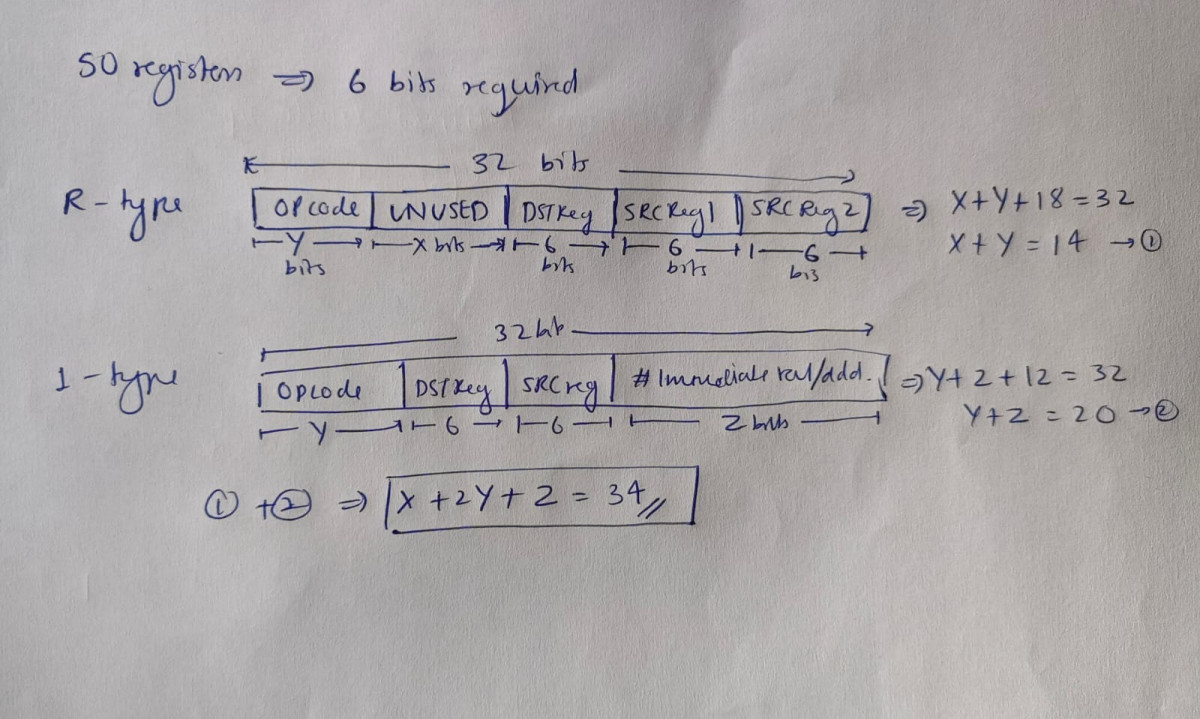 50 registers ⇒ 6 bits required
32 bits
R-type OPcode UNUSED DSTReg SRCReg1 SRCReg2 ⇒ X+Y+18=32
Y bits X bits 6 bits 6 bits 6 bis X+Y=14 →①
32 bit
I-type OPcode DSTReg SRCreg #Immediate val/add. ⇒ Y+Z+12=32
Y 6 6 Z bits Y+Z=20 →②
①+② ⇒ X+2Y+Z=34//